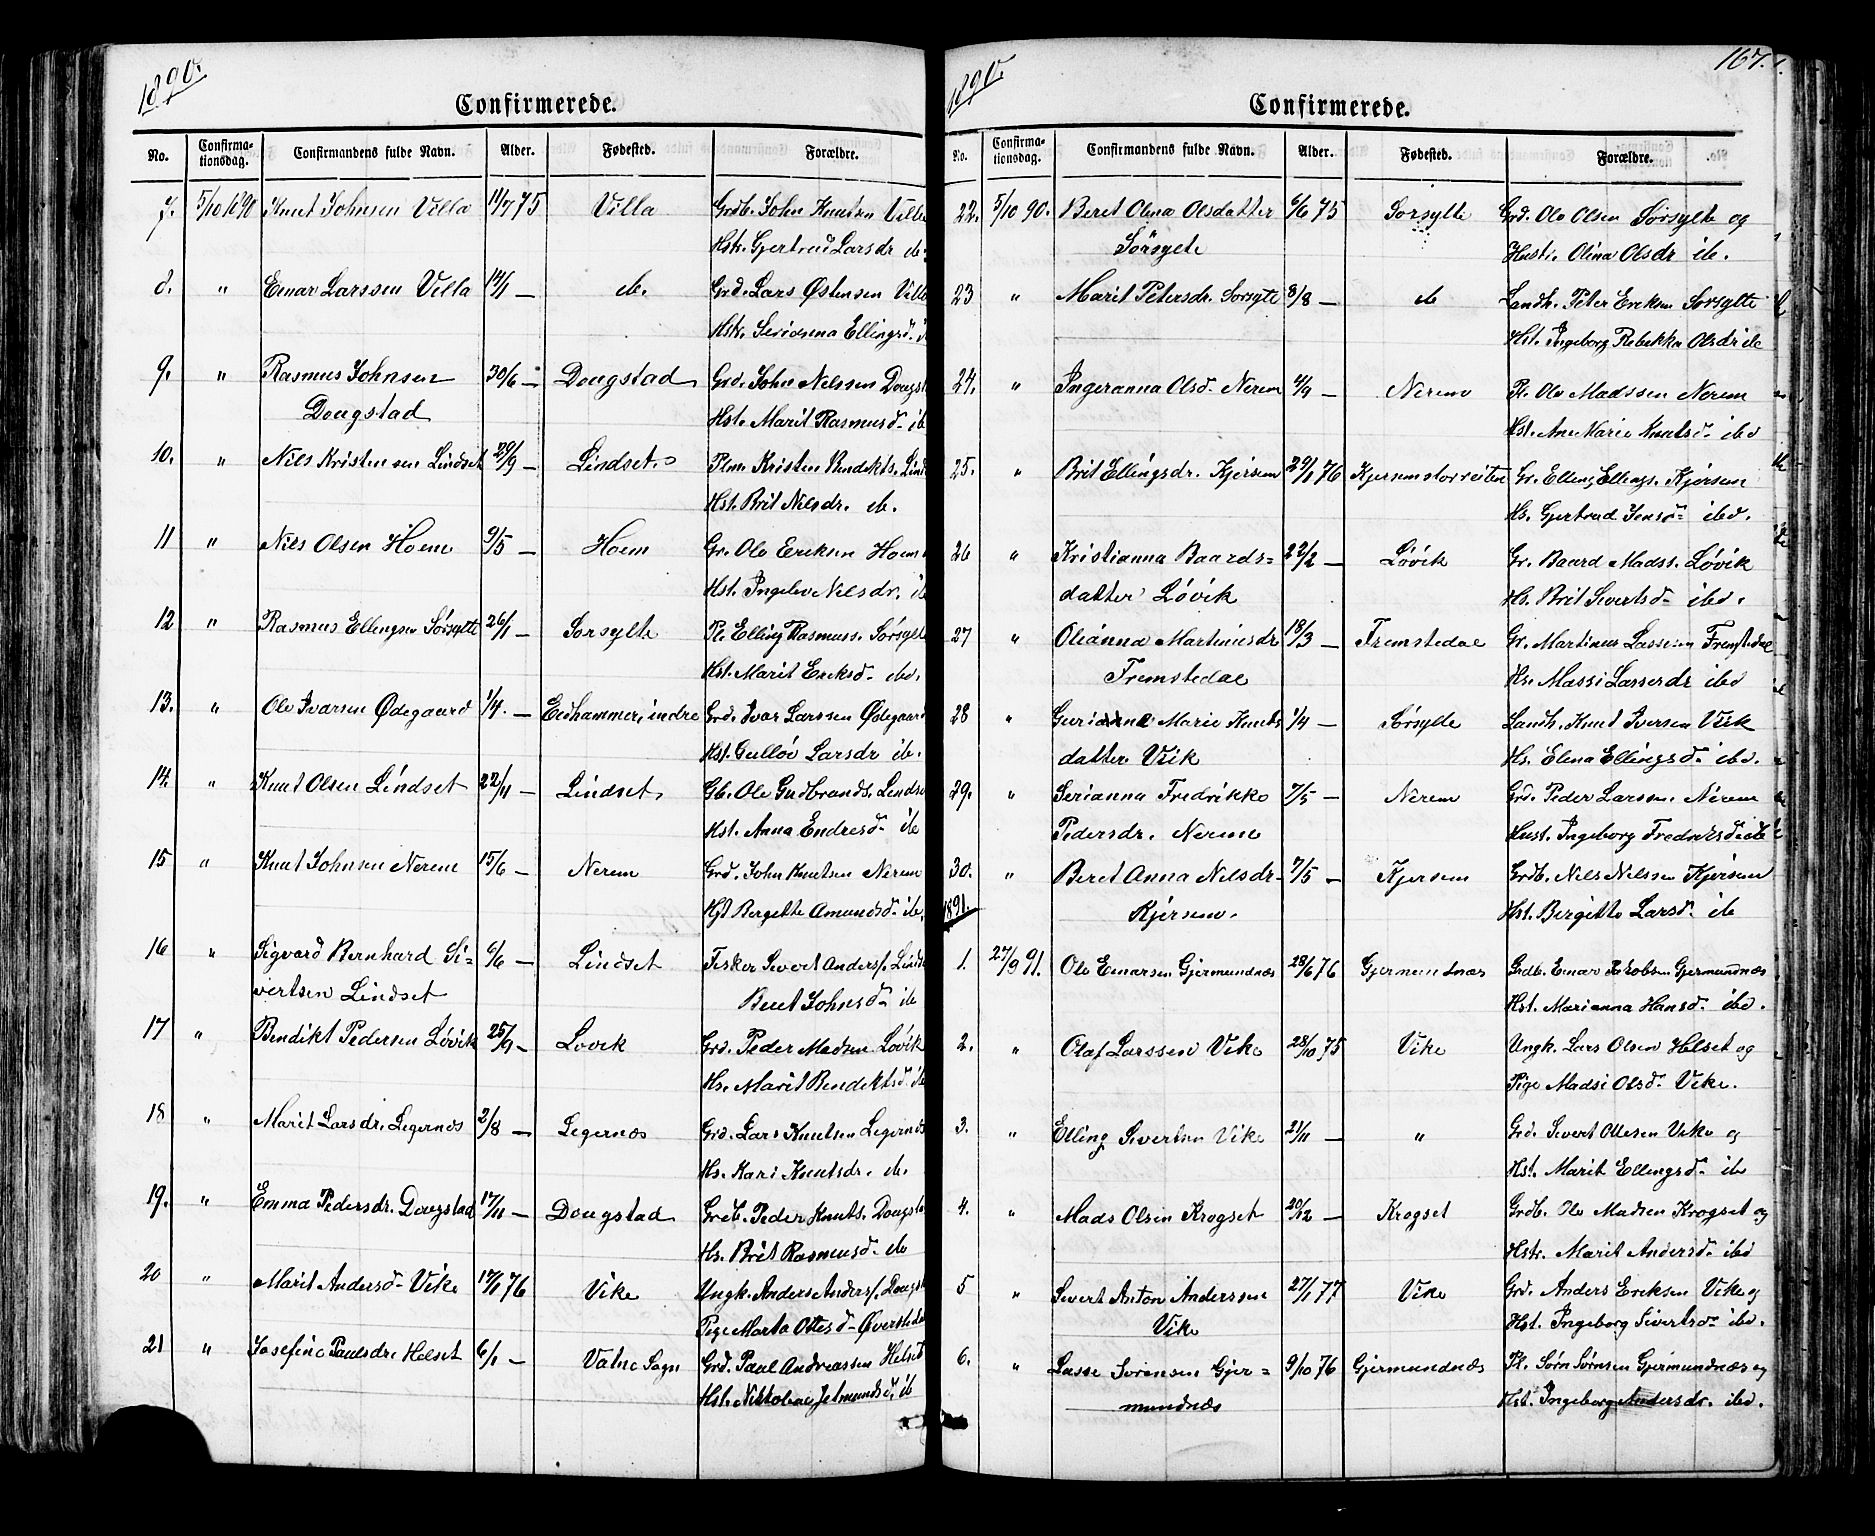 1890.
Confirmerede.
No. Confirmationsdag. Confirmandens fulde Navn. Alder. Fødested. Forældre.
7. 5/10 1890 Knut Johnsen Villa 14/7 75 Villa Grdb. John Knutsn Villa
Hstr. Gjertrud Larsdr ib.
8. " Einar Larssen Villa 14/1 — ib. Grd. Lars Østensen Villa
Hstr. Serianna Ellingsd.
9. " Rasmus Johnsen 30/6 — Dougstad Grd. John Nelssen
Dougstad Hst. Marit Rasmusd. ib
10. " Nils Kristensen Lindset 29/9 — Lindset. Plm. Kristen Bendikts.
Hst. Brit Nilsdr. ib.
11 " Nils Olsen Hoem 9/5 — Hoem Gr. Ole Eriksen Hoem
Hst. Ingelev Nilsdr. ib
12 " Rasmus Ellingsen Sørsylte 26/1 — Sorsylte Pl. Elling Rasmuss. Sörsylte
Hst. Marit Eriksd. ibd.
13. " Ole Ivarsen Ødegaard 1/4. — Eidhammer, indre Grd. Ivar Larssen Ødegaard
Hst. Gulløv Larsdr ib.
14. " Knut Olsen Lindset 22/11 — Lindset. Gb. Ole Gudbrands.
Hst. Anna Endresd. ib
15 " Knut Johnsen Nerem 15/6 — Nerem Grd. John Knutsen Nerem
Hst Bergitte Amundsd. ib.
16 " Sigvard Bernhard Si= 6/6 — Lindset Fisker Sivert Anders.
vertsen Lindset Beret Johnsd. ib
17 " Bendikt Pedersen Løvik 25/9 — Lovik Grd. Peder Madsen Løvik
Hs. Marit Bendiktsd. ib
18 " Marit Larsdr. Legernæs 2/8 — Legernæs Grd. Lars Knutsen Legernæs
Hs. Kari Knutsdr. ib.
19. " Emma Pedersdr. Dougstad 17/11 — Dougstad Grdb. Peder Knuts.
Hs. Brit Rasmusd. ib
20 " Marit Andersd. Vike 17/1 76 Vike Ungk. Anders Anders.
Pige Marta Ottesd.
21 " Josefine Paulsdr. Helset 6/1 — Vatne Sogn Grd. Paul Andreassen Helset
Hst. Nikkoline
1890.
167.
Confirmerede.
No. Confirmationsdag. Confirmandens fulde Navn. Alder. Fødested. Forældre.
22. 5/10 90. Beret Olina Olsdatter 6/6 75 Sorsylte Grd. Ole Olsen Sørsylte og
Sørsylte Hustr. Olina Olsdr ib.
23 " Marit Petersdr. Sorsylte 8/8 — ib Landh. Peter Eriksen Sorsylte
Hst. Ingeborg Rebekka Olsdr ib
24. " Ingeranna Olsd. Nerem 4/9 — Nerem Pl. Ole Madssen Nerem
Hst. Ane Marie Knutsd. ibd
25. " Brit Ellingsdr. Kjersem 29/1 76 Kjersemstorviten Gr. Elling Ellings. Kjersem
Hs. Gjertrud Jensd. ibd.
26 " Kristianna Baards= 22/2 — Løvik Gr. Baard Madss. Løvik
datter Løvik Hs. Brit Sivertsd. ibd.
27 " Olianna Martinusdr 18/3 — Fremstedal Gr. Martinus Lassesen Fremstedal
Fremstedal Hs. Massi Lassesdr ibd
28 " Marie Knuts 1/4 — Sørsylte Landh. Knut Iversen Vik
datter Vik Hs. Elena Ellingsd. ibd.
29. " Serianna Fredrikke 7/5 — Nerem Grd. Peder Larssen Nerem
Pedersdr. Nerem Hust. Ingeborg Fredriksd. ib
30. " Beret Anna Nilsdr. 7/5 — Kjersem Grdb. Nils Nilssen Kjersem
Kjersem. Hst. Birgitte Larsd. ib
1891.
1. 27/9 91. Ole Einarsen Gjermundnæs 28/6 76 Gjermundnæs Grdb. Einar Jakobsen Gjermundnæs
Hst. Marianna Hansd. ibd.
2. " Olaf Larssen Vike 28/10 75 Vike Ungk. Lars Olsen Helset og
Pige Madsi Olsd. Vike.
3. " Elling Sivertsen Vike 21/11 — " Grd. Sivert Ottesen Vike og
Hst. Marit Ellingsd. ib
4. " Mads Olsen Krogset 20/12 — Krogset Grdb. Ole Madsen Krogset og
Hstr. Marit Andersd. ibd
5 " Sivert Anton Anderssen 27/1 77 Vike Grd. Anders Eriksen Vike og
Vike Hst. Ingeborg Sivertsd. ibd.
6. " Lasse Sørensen Gjer= 9/10 76 Gjermundnæs Pl. Sørn Sørnsen Gjermundnæs og
mundnæs Hst. Ingeborg Andersdr. ibd.